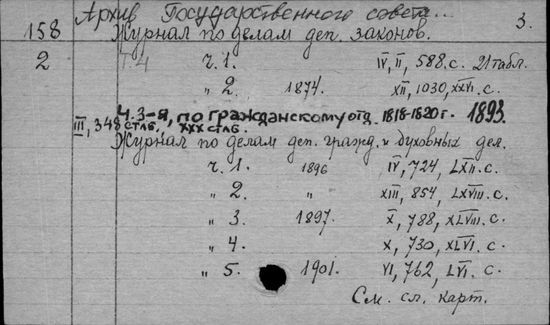 Архив Государственного совета... 3.
158 Журнал по делам деп. законов.
2 Т. 4 ч. 1. IV, II, 588 с. 21 табл.
" 2. 1874. XII, 1030, XXVI. с.
Ч. 3-я, по гражданскому отд. 1818-1820 г. 1893.
III, 348 стлб., XXX стлб.
Журнал по делам деп. гражд. и духовных дел.
ч. 1. 1896 IV, 724, LXII. с.
" 2. " XIII, 854, LXVIII. с.
" 3. 1897. X, 788, XLVIII. с.
" 4. X, 730, XLVI. с.
" 5. 1901. VI, 762, LVI. с.
См. сл. карт.